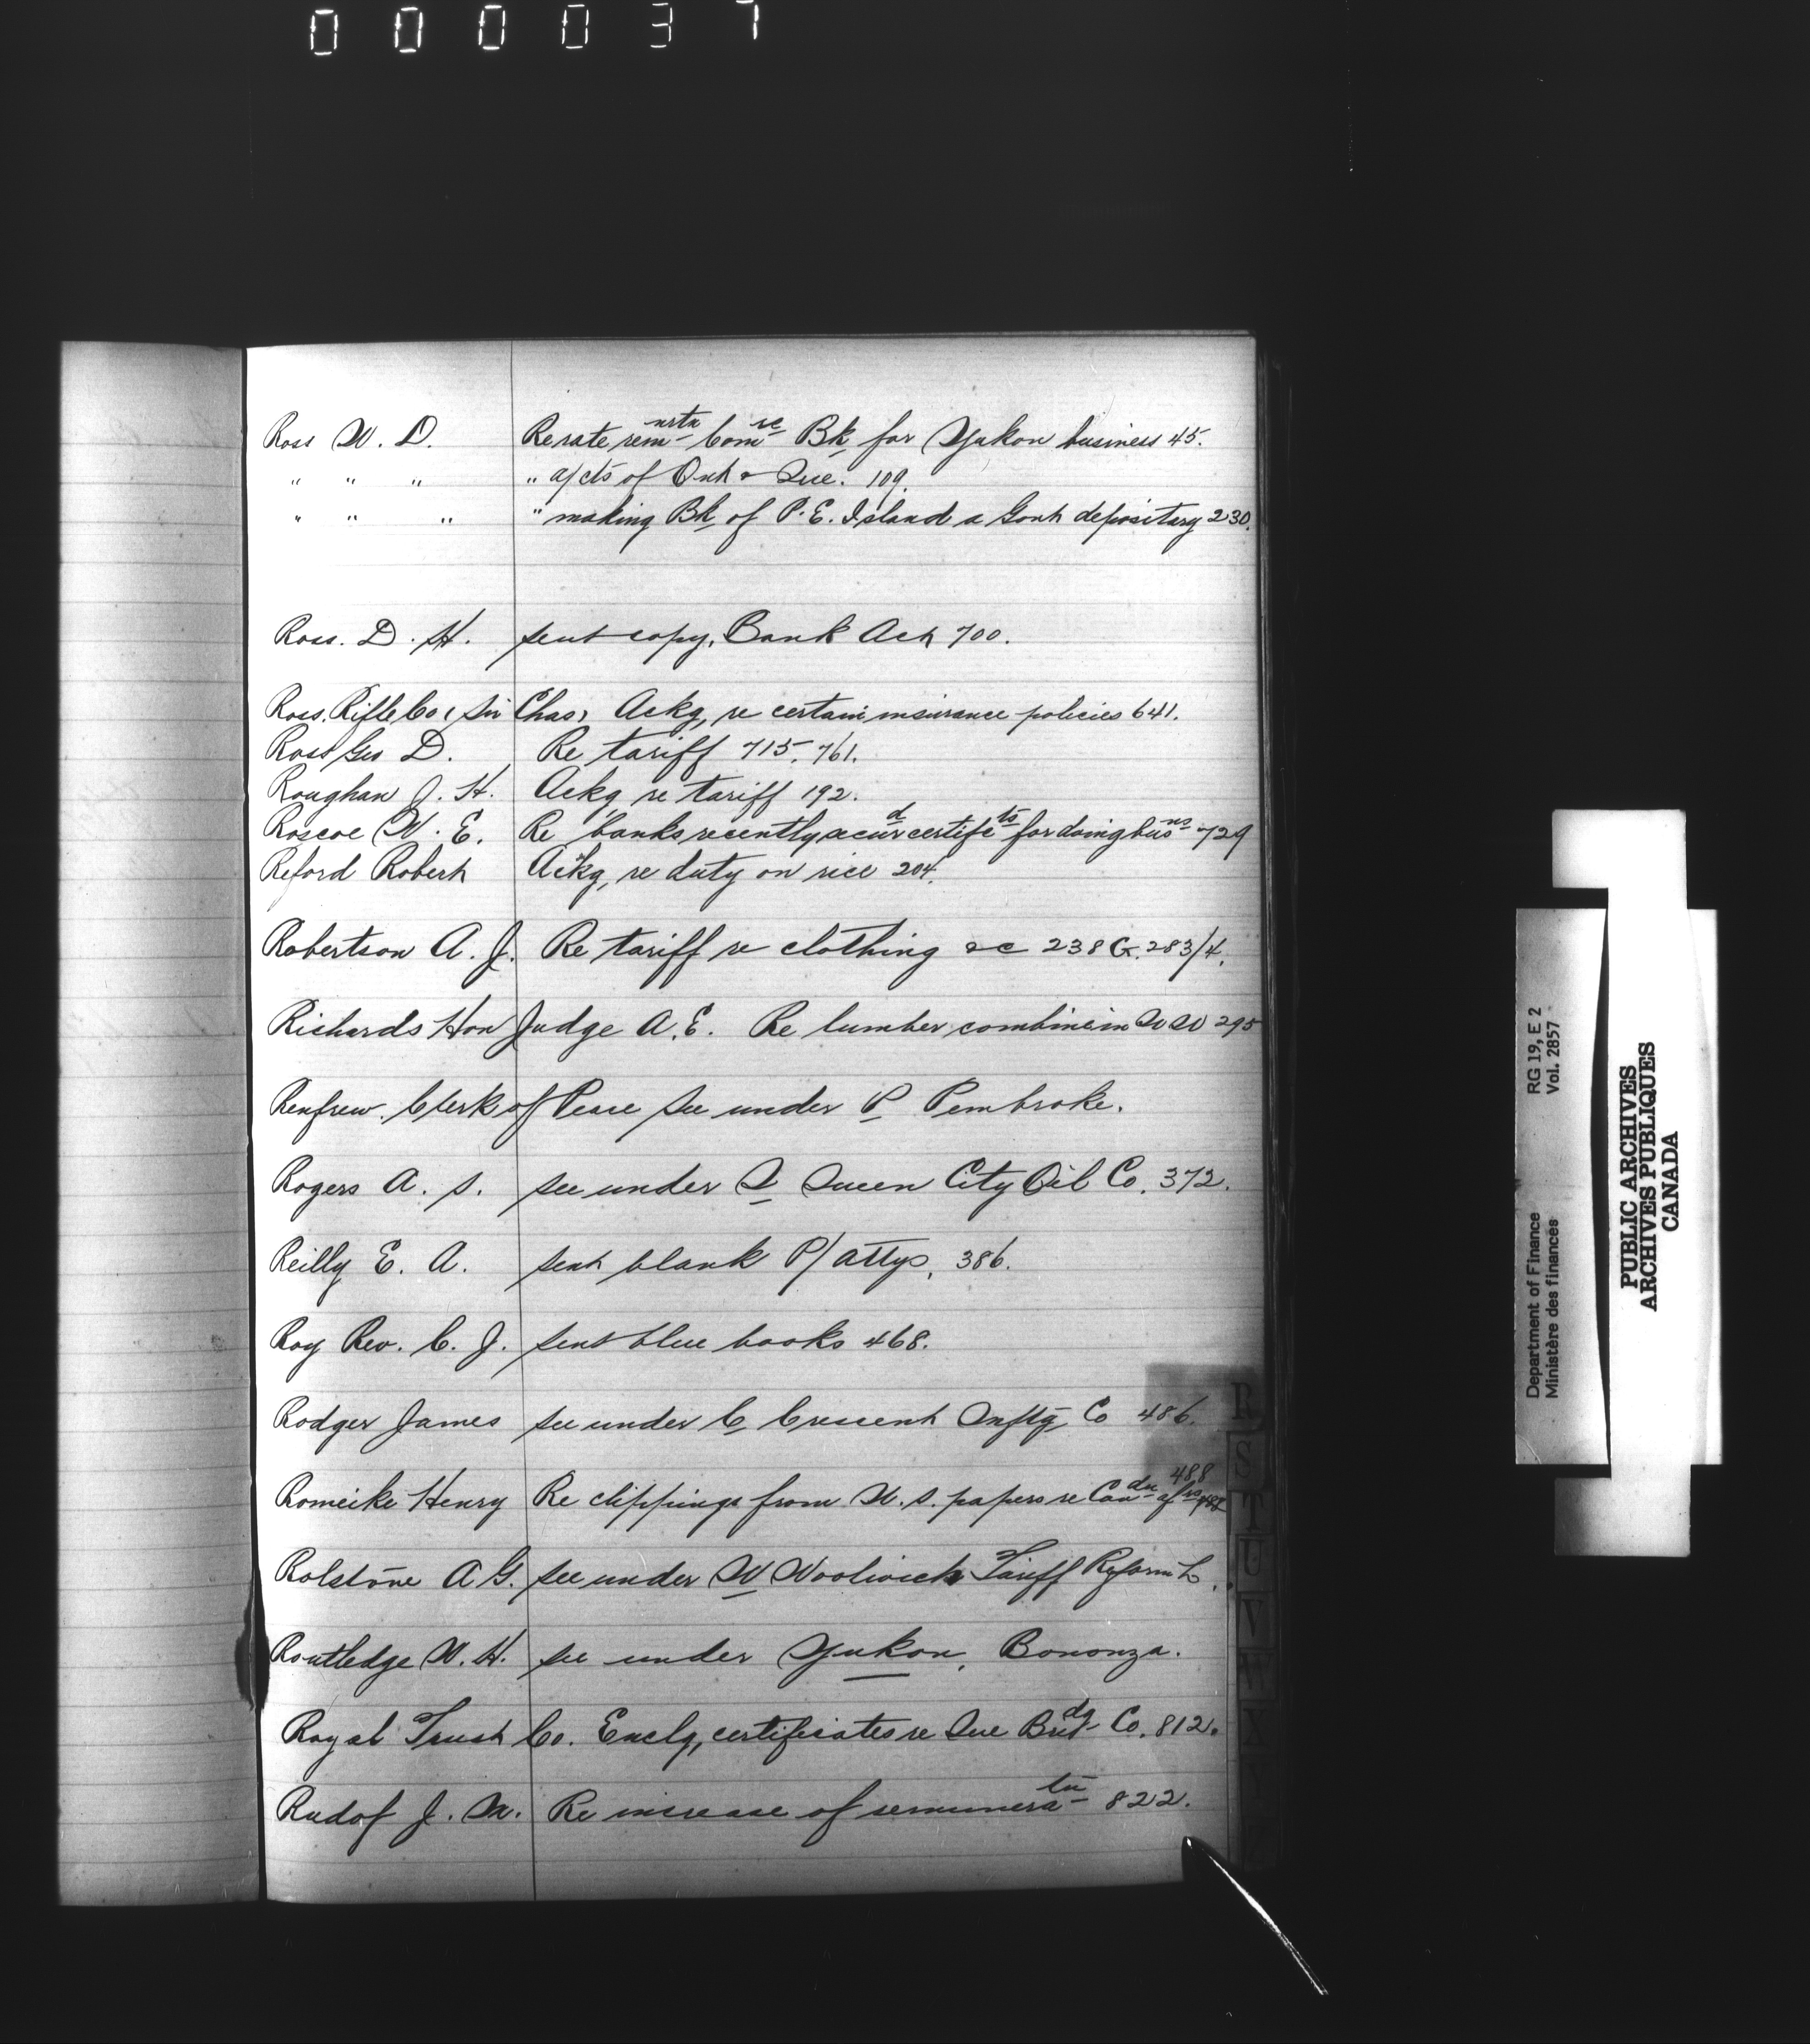 000037
Ross W. D. Re rate remnrtn Comce Bk for Yukon business 45.
" " " " a/cts of Ont & Que. 109.
" " " " making Bk of P. E. Island a Govt depositary 230.
Ross. D. H. sent copy, Bank Act 700.
Ross. Rifle Co, (Sir Chas) Ackg, re certain insurance policies 641.
Ross Geo D. Re tariff 715, 761.
Roughan J. H. Ackg re tariff 192.
Roscoe W. E. Re banks recently secured certifcts for doing busns 729
Reford Robert Ackg, re duty on rice 204.
Robertson A. J. Re tariff re clothing &c 238 G. 283/4.
Richards Hon Judge A. E. Re lumber combine in N W 295
Renfrew. Clerk of Peace See under P Pembroke.
Rogers A. S. see under Q Queen City Oil Co. 372.
Reilly E. A. sent blank P/attys, 386.
Roy Rev. C. J. sent blue books 468.
Rodger James see under C Crescent Mnftg Co 486.
Romeike Henry Re clippings from U. S. papers re Candn afrs 488
Rolstone A G. see under W Woolwich Tariff Reform L.
Routledge W. H. see under Yukon, Bononza.
Royal Trust Co. Enclg, certificates re Que Bridg Co. 812.
Rudof J. M. Re increase of remuneratn 822.
R
S
T
U
V
W
X
Y
Z
RG 19, E 2
Vol. 2857
Department of Finance
Ministère des finances
PUBLIC ARCHIVES
ARCHIVES PUBLIQUES
CANADA